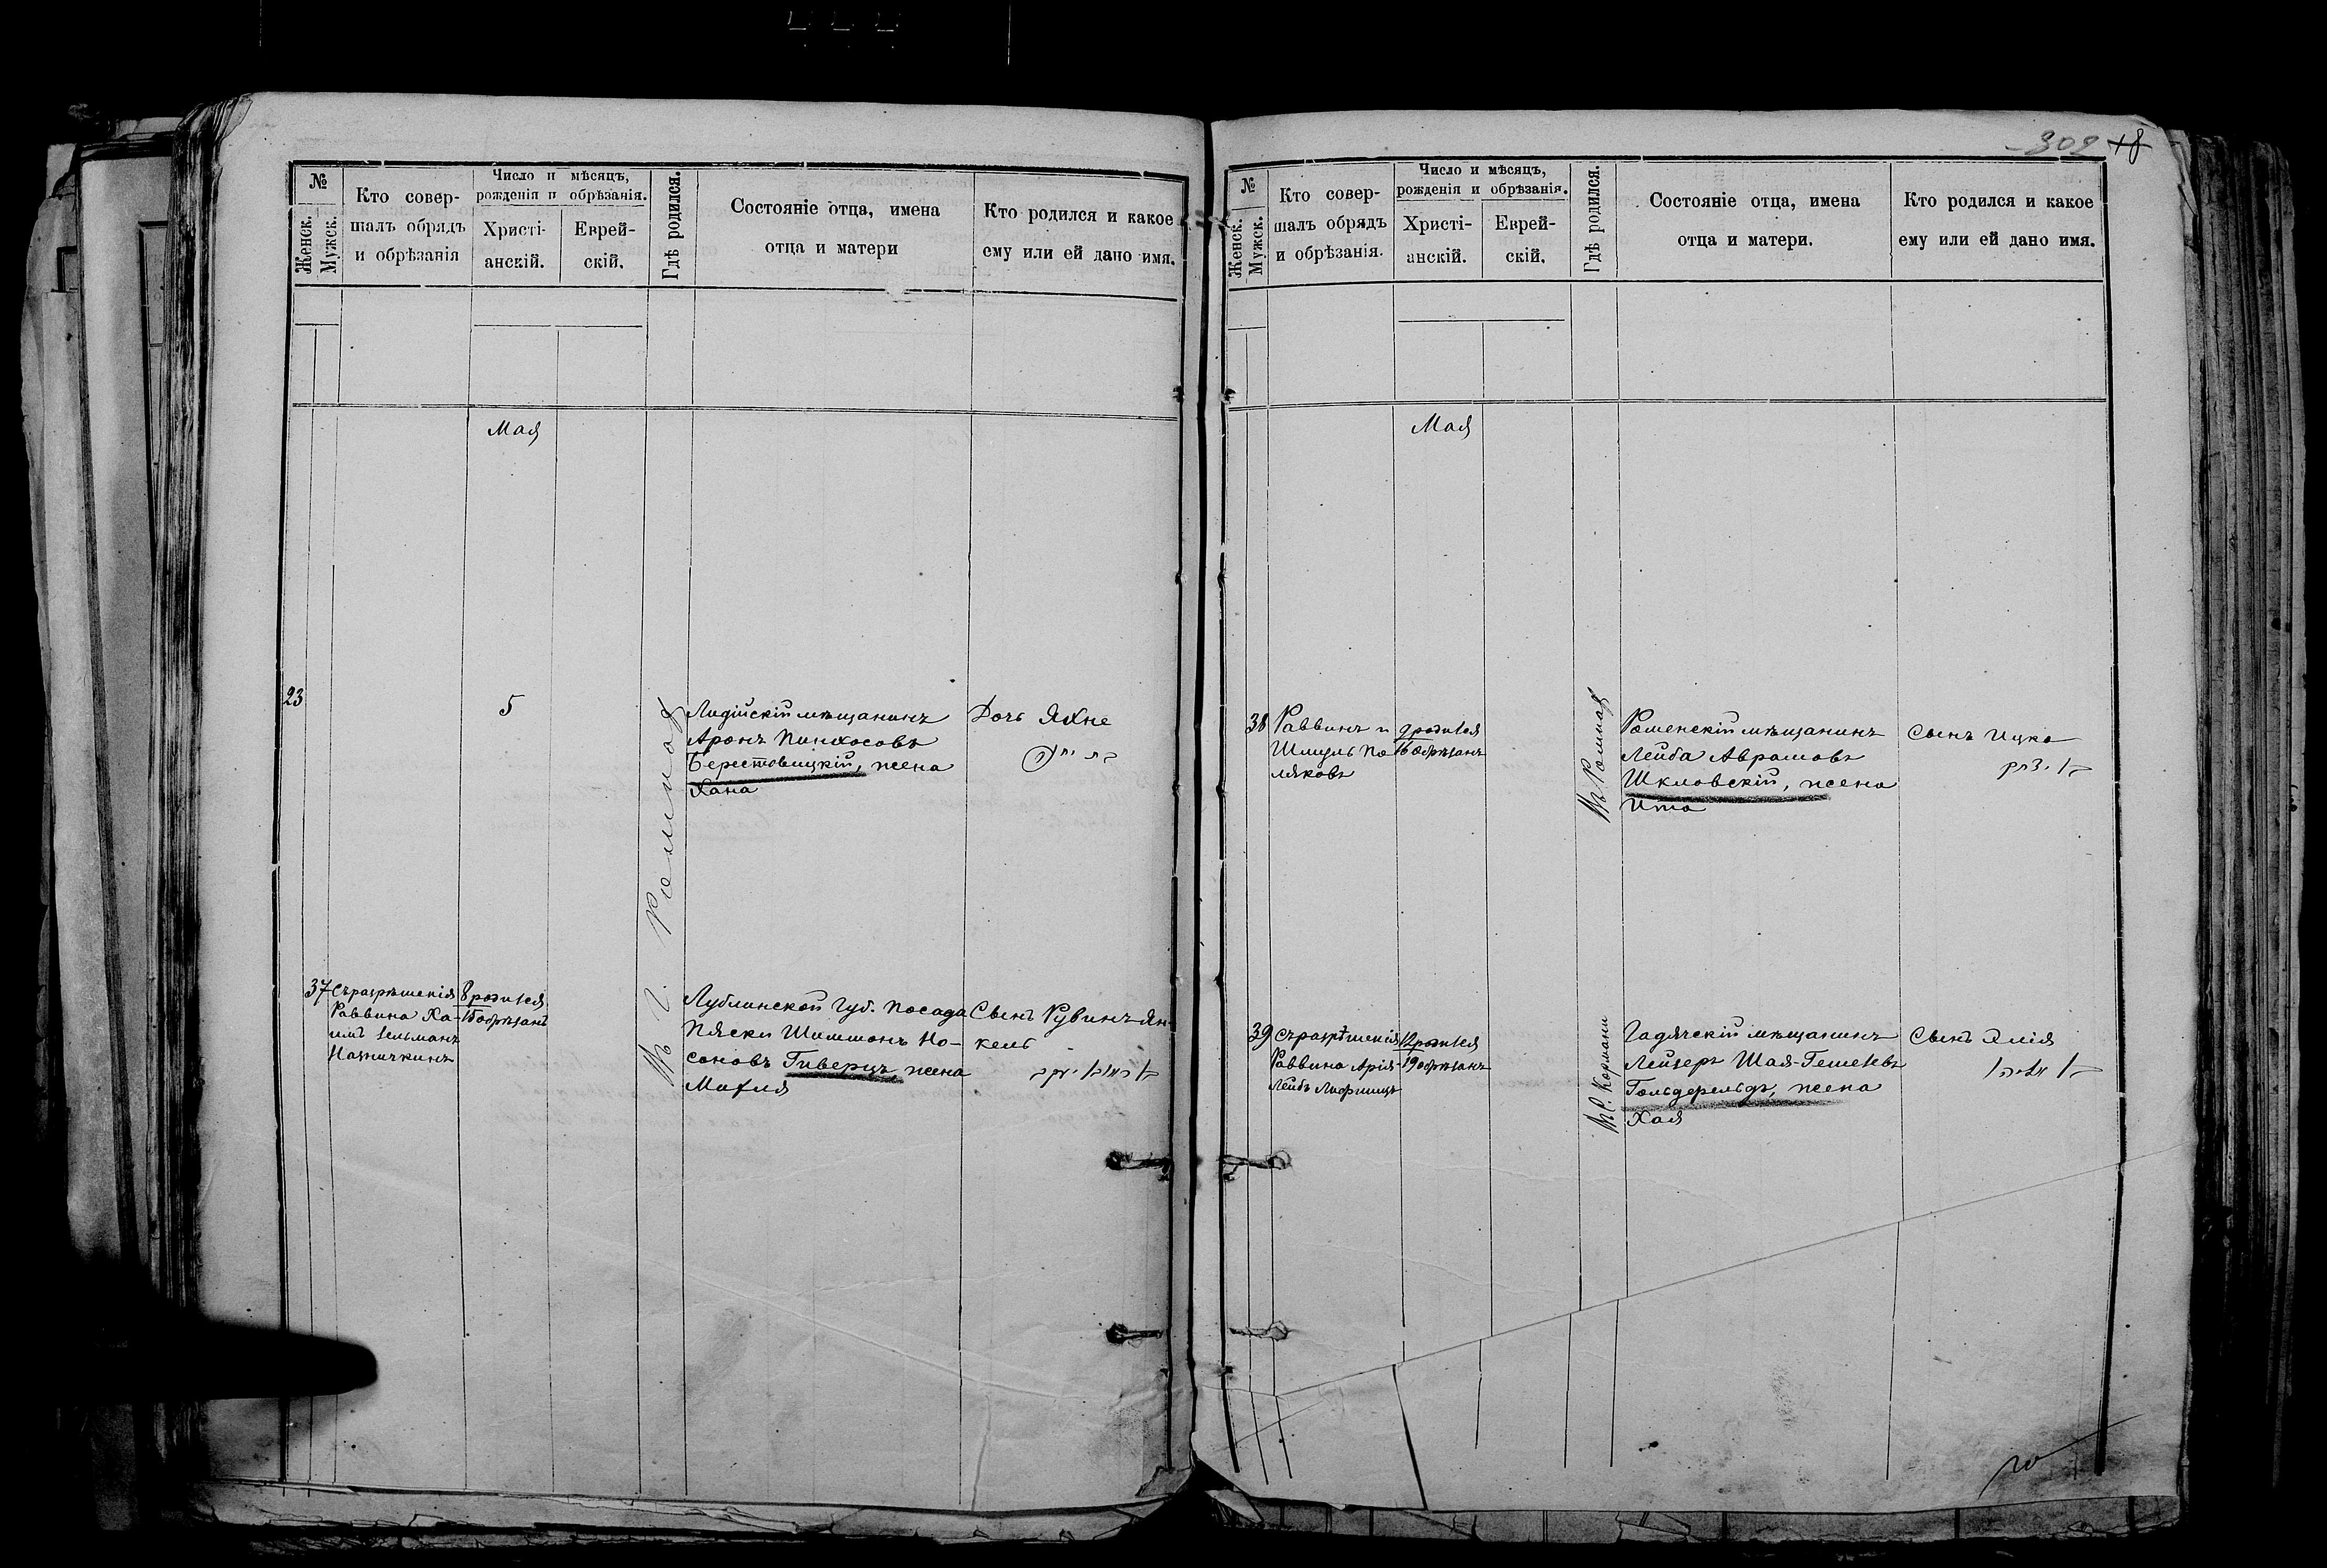 №
Женск.
Мужск.
Кто совер-
шалъ обрядъ
и обрѣзанія
Число и мѣсяцъ,
рожденія и обрѣзанія.
Христі-
анскій.
Еврей-
скій.
Гдѣ родился.
Состояніе отца, имена
отца и матери
Кто родился и какое
ему или ей дано имя.
Мая
23
5
Въ г. Ромнах
Лидійскій мѣщанинъ
Аронъ Пинхосовъ
Берестовицкій, жена
Хана
Дочь Яхне
37
Съ разрѣшенія
Раввина Ха-
имъ Зельманъ
8 родился
15 обрѣзанъ
Люблинской Губ. Посада
Пяски Шиммонъ Но-
соновъ Гиверцъ, жена
Махля
Сынъ Рувинъ-Ян-
кель
302
18
№
Женск.
Мужск.
Кто совер-
шалъ обрядъ
и обрѣзанія.
Число и мѣсяцъ,
рожденія и обрѣзанія.
Христі-
анскій.
Еврей-
скій.
Гдѣ родился.
Состояніе отца, имена
отца и матери.
Кто родился и какое
ему или ей дано имя.
Мая
38
Раввинъ и
Шмуль По
ляковъ
9 родился
16 обрѣзанъ
Въ Ромнах
Роменскій мѣщанинъ
Лейба Аврамовъ
Шкловскій, жена
Ита
Сынъ Ицко
39
Съ разрѣшенія
Раввина Арія-
Лейбъ Лифшицъ
12 родился
19 обрѣзанъ
Гадячскій мѣщанинъ
Лейзеръ Шая-Гешелевъ
Гольдфельдъ, жена
Хая
Сынъ Элія